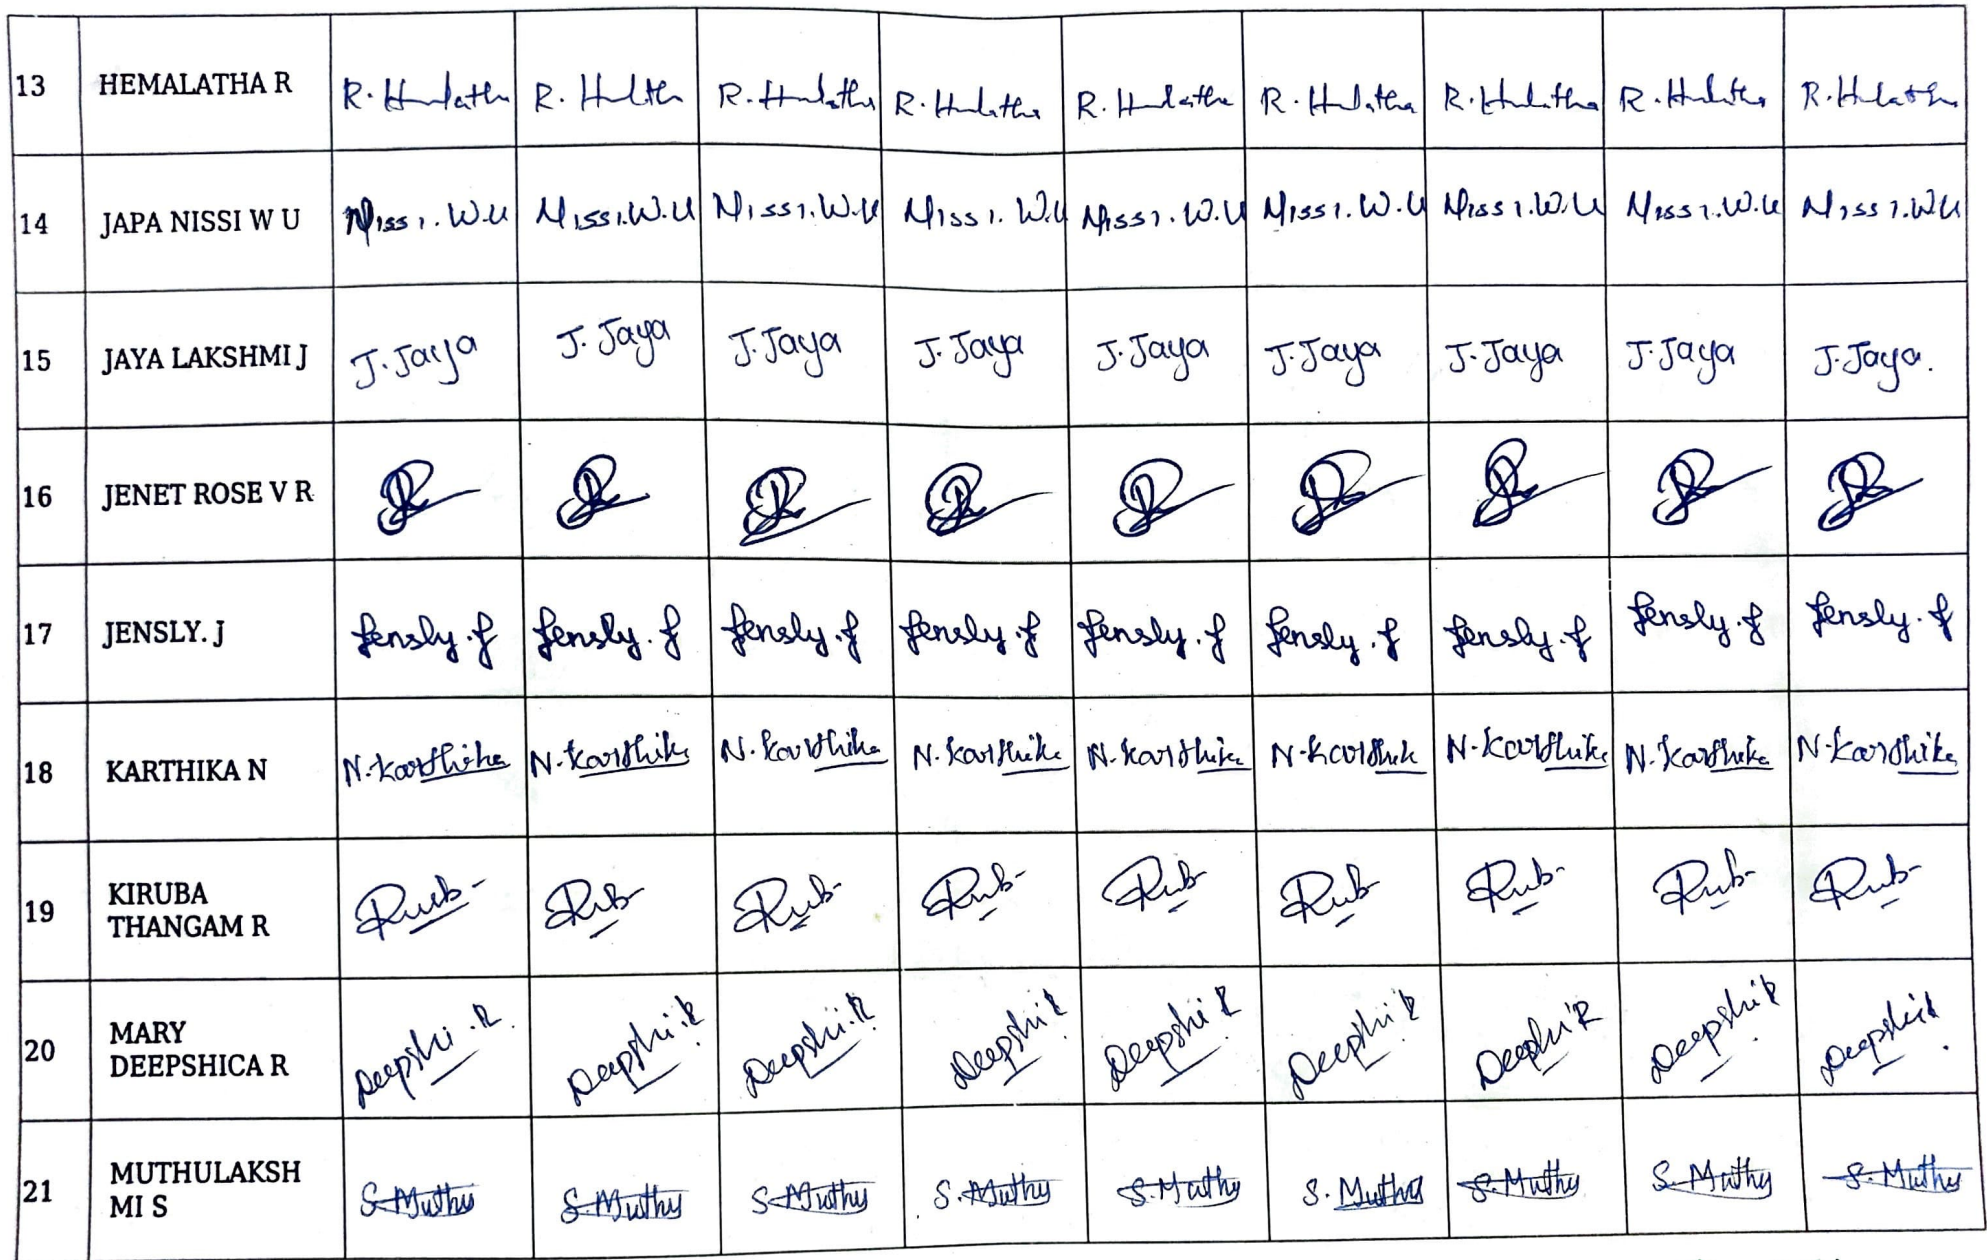 13 HEMALATHA R R. Hemlatha R. Hultha R. Hemlatha R. Hemlatha R. Hemlatha R. Hemlatha R. Hemlatha R. Hemlatha R. Hemlatha
14 JAPA NISSI W U Nissi.W.U Nissi.W.U Nissi.W.U Nissi.W.U Nissi.W.U Nissi.W.U Nissi.W.U Nissi.W.U Nissi.W.U
15 JAYA LAKSHMI J J.Jaya J.Jaya J.Jaya J.Jaya J.Jaya J.Jaya J.Jaya J.Jaya J.Jaya.
16 JENET ROSE V R
17 JENSLY. J Jensly.J Jensly.J Jensly.J Jensly.J Jensly.J Jensly.J Jensly.J Jensly.J Jensly.J
18 KARTHIKA N N.Karthika N.Karthika N.Karthika N.Karthika N.Karthika N.Karthik N.Karthika N.Karthika N.Karthika
19 KIRUBA
THANGAM R Rub Rub Rub Rub Rub Rub Rub Rub Rub
20 MARY
DEEPSHICA R Deepshi.R Deepshi.R Deepshi.R Deepshi.R Deepshi.R Deepshi.R Deepshi.R Deepshi.R Deepshi.R
21 MUTHULAKSH
MI S S.Muthu S.Muthu S.Muthu S.Muthu S.Muthu S.Muthu S.Muthu S.Muthu S.Muthu